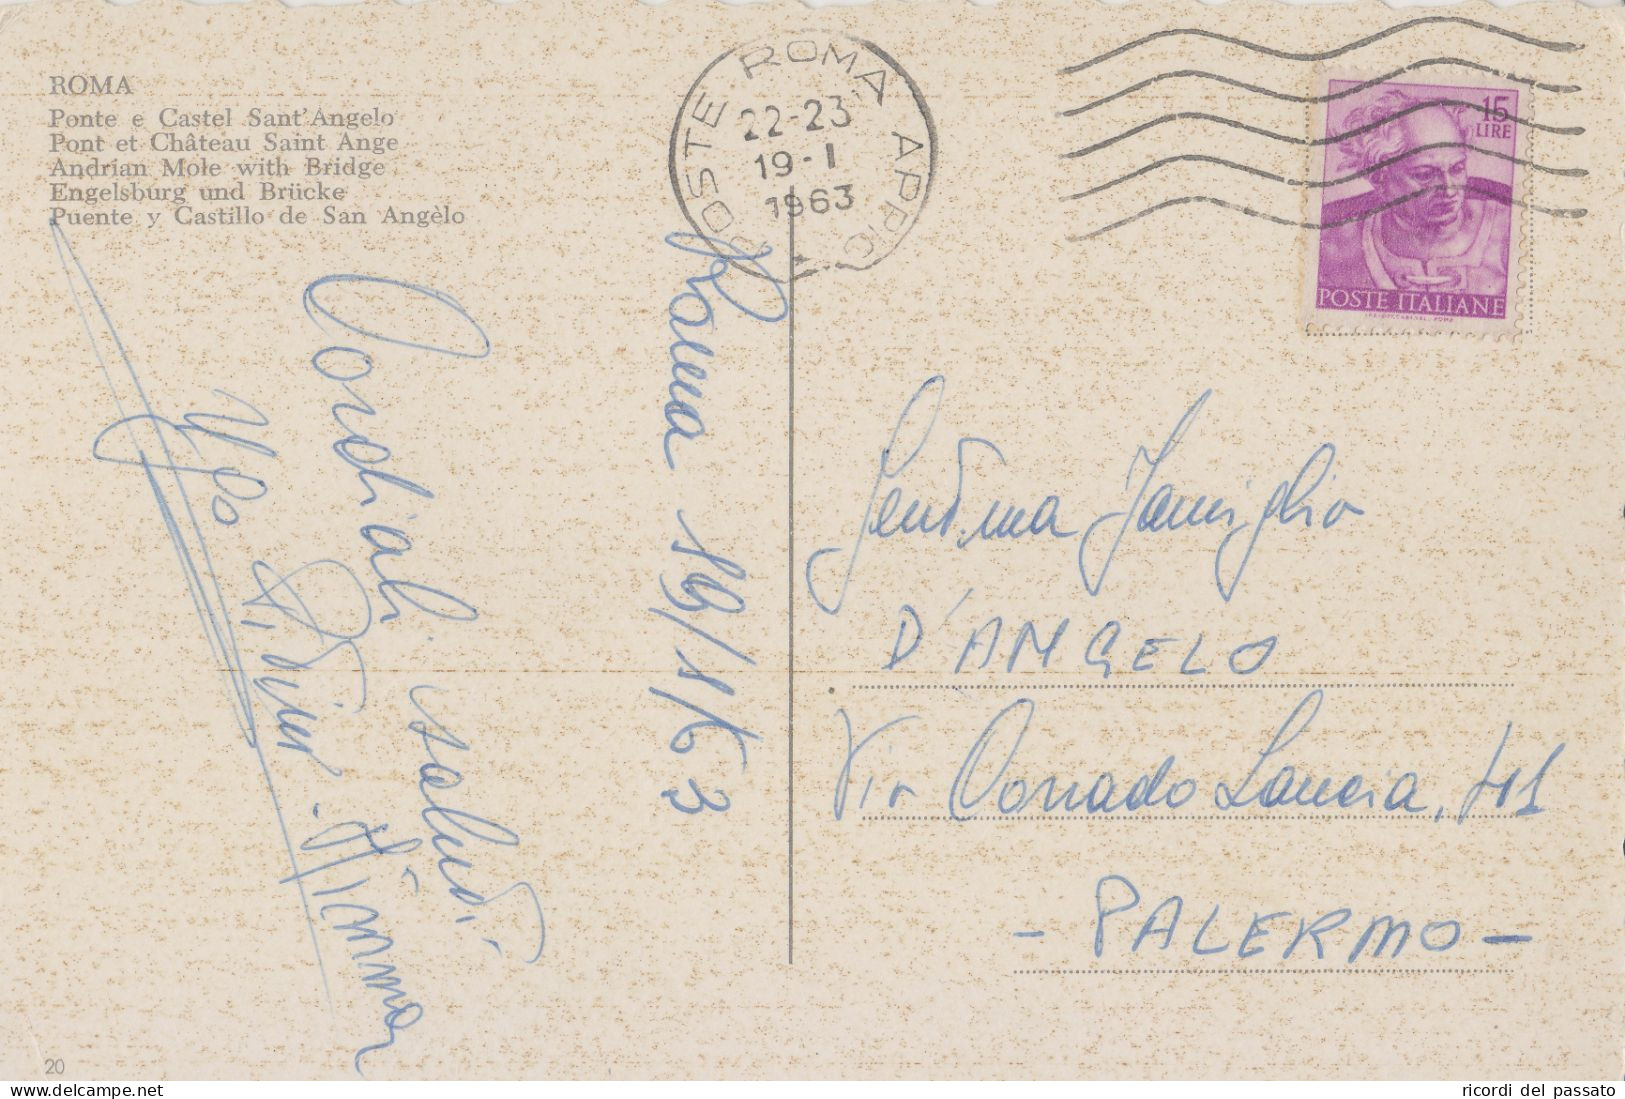 ROMA
Ponte e Castel Sant'Angelo
Pont et Château Saint Ange
Andrian Mole with Bridge
Engelsburg und Brücke
Puente y Castillo de San Angèlo
POSTE ROMA APPIO
22-23
19-1
1963
15
LIRE
POSTE ITALIANE
Roma 19/1/63
Cordiali saluti
Gent.ma Famiglia
D'ANGELO
Via Corrado Lancia, 41
- PALERMO -
20
delcampe.net
ricordi del passato